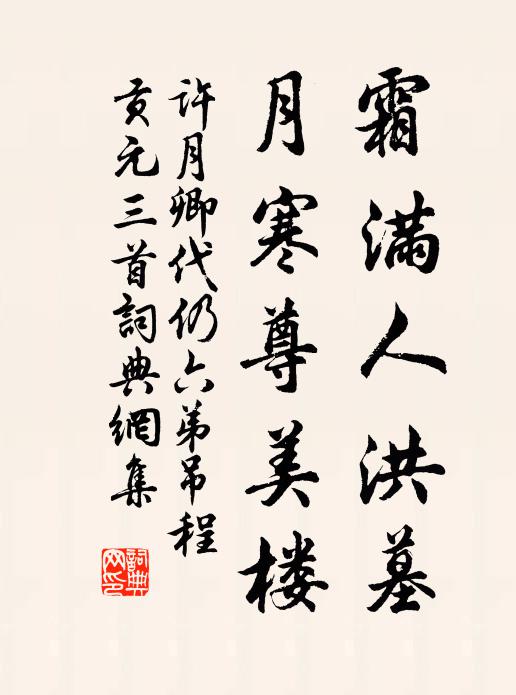 霜满人洪墓
月寒尊美楼
许月卿代仍六弟吊程
贡元三首詞典網集
詞典
网印